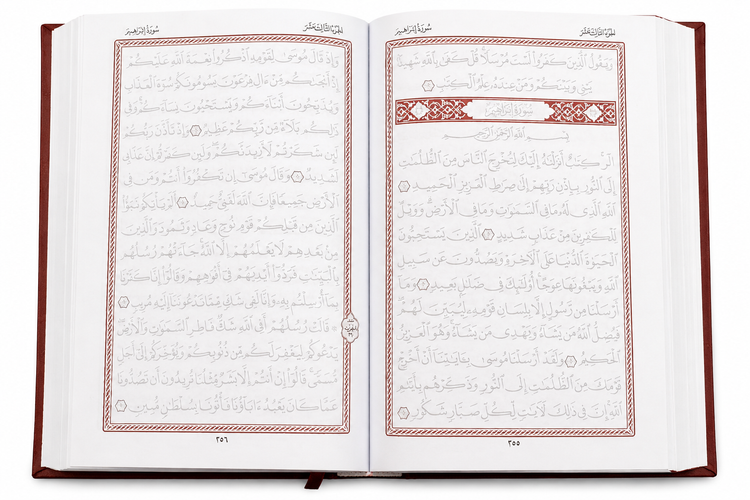 الجزء الثالث عشر سورة إبراهيم
وَيَقُولُ ٱلَّذِينَ كَفَرُوا۟ لَسْتَ مُرْسَلًا قُلْ كَفَىٰ بِٱللَّهِ شَهِيدًۢا
بَيْنِى وَبَيْنَكُمْ وَمَنْ عِندَهُۥ عِلْمُ ٱلْكِتَٰبِ
سورة إبراهيم
بِسْمِ ٱللَّهِ ٱلرَّحْمَٰنِ ٱلرَّحِيمِ
الٓر كِتَٰبٌ أَنزَلْنَٰهُ إِلَيْكَ لِتُخْرِجَ ٱلنَّاسَ مِنَ ٱلظُّلُمَٰتِ
إِلَى ٱلنُّورِ بِإِذْنِ رَبِّهِمْ إِلَىٰ صِرَٰطِ ٱلْعَزِيزِ ٱلْحَمِيدِ
ٱللَّهِ ٱلَّذِى لَهُۥ مَا فِى ٱلسَّمَٰوَٰتِ وَمَا فِى ٱلْأَرْضِ وَوَيْلٌ
لِّلْكَٰفِرِينَ مِنْ عَذَابٍ شَدِيدٍ ٱلَّذِينَ يَسْتَحِبُّونَ
ٱلْحَيَوٰةَ ٱلدُّنْيَا عَلَى ٱلْءَاخِرَةِ وَيَصُدُّونَ عَن سَبِيلِ
ٱللَّهِ وَيَبْغُونَهَا عِوَجًا أُو۟لَٰٓئِكَ فِى ضَلَٰلٍۭ بَعِيدٍ وَمَآ
أَرْسَلْنَا مِن رَّسُولٍ إِلَّا بِلِسَانِ قَوْمِهِۦ لِيُبَيِّنَ لَهُمْ
فَيُضِلُّ ٱللَّهُ مَن يَشَآءُ وَيَهْدِى مَن يَشَآءُ وَهُوَ ٱلْعَزِيزُ
ٱلْحَكِيمُ وَلَقَدْ أَرْسَلْنَا مُوسَىٰ بِـَٔايَٰتِنَآ أَنْ أَخْرِجْ
قَوْمَكَ مِنَ ٱلظُّلُمَٰتِ إِلَى ٱلنُّورِ وَذَكِّرْهُم بِأَيَّىٰمِ
ٱللَّهِ إِنَّ فِى ذَٰلِكَ لَءَايَٰتٍ لِّكُلِّ صَبَّارٍ شَكُورٍ
٢٥٥
الجزء الثالث عشر سورة إبراهيم
وَإِذْ قَالَ مُوسَىٰ لِقَوْمِهِ ٱذْكُرُوا۟ نِعْمَةَ ٱللَّهِ عَلَيْكُمْ
إِذْ أَنجَىٰكُم مِّنْ ءَالِ فِرْعَوْنَ يَسُومُونَكُمْ سُوٓءَ ٱلْعَذَابِ
وَيُذَبِّحُونَ أَبْنَآءَكُمْ وَيَسْتَحْيُونَ نِسَآءَكُمْ وَفِى
ذَٰلِكُم بَلَآءٌ مِّن رَّبِّكُمْ عَظِيمٌ وَإِذْ تَأَذَّنَ رَبُّكُمْ
لَئِن شَكَرْتُمْ لَأَزِيدَنَّكُمْ وَلَئِن كَفَرْتُمْ إِنَّ عَذَابِى
لَشَدِيدٌ وَقَالَ مُوسَىٰٓ إِن تَكْفُرُوٓا۟ أَنتُمْ وَمَن فِى
ٱلْأَرْضِ جَمِيعًا فَإِنَّ ٱللَّهَ لَغَنِىٌّ حَمِيدٌ أَلَمْ يَأْتِكُمْ نَبَؤُا۟
ٱلَّذِينَ مِن قَبْلِكُمْ قَوْمِ نُوحٍ وَعَادٍ وَثَمُودَ وَٱلَّذِينَ
مِنۢ بَعْدِهِمْ لَا يَعْلَمُهُمْ إِلَّا ٱللَّهُ جَآءَتْهُمْ رُسُلُهُم
بِٱلْبَيِّنَٰتِ فَرَدُّوٓا۟ أَيْدِيَهُمْ فِىٓ أَفْوَٰهِهِمْ وَقَالُوٓا۟ إِنَّا كَفَرْنَا
بِمَآ أُرْسِلْتُم بِهِۦ وَإِنَّا لَفِى شَكٍّ مِّمَّا تَدْعُونَنَآ إِلَيْهِ مُرِيبٍ
قَالَتْ رُسُلُهُمْ أَفِى ٱللَّهِ شَكٌّ فَاطِرِ ٱلسَّمَٰوَٰتِ وَٱلْأَرْضِ
يَدْعُوكُمْ لِيَغْفِرَ لَكُم مِّن ذُنُوبِكُمْ وَيُؤَخِّرَكُمْ إِلَىٰٓ أَجَلٍ
مُّسَمًّى قَالُوٓا۟ إِنْ أَنتُمْ إِلَّا بَشَرٌ مِّثْلُنَا تُرِيدُونَ أَن تَصُدُّونَا
عَمَّا كَانَ يَعْبُدُ ءَابَآؤُنَا فَأْتُونَا بِسُلْطَٰنٍ مُّبِينٍ
٢٥٦